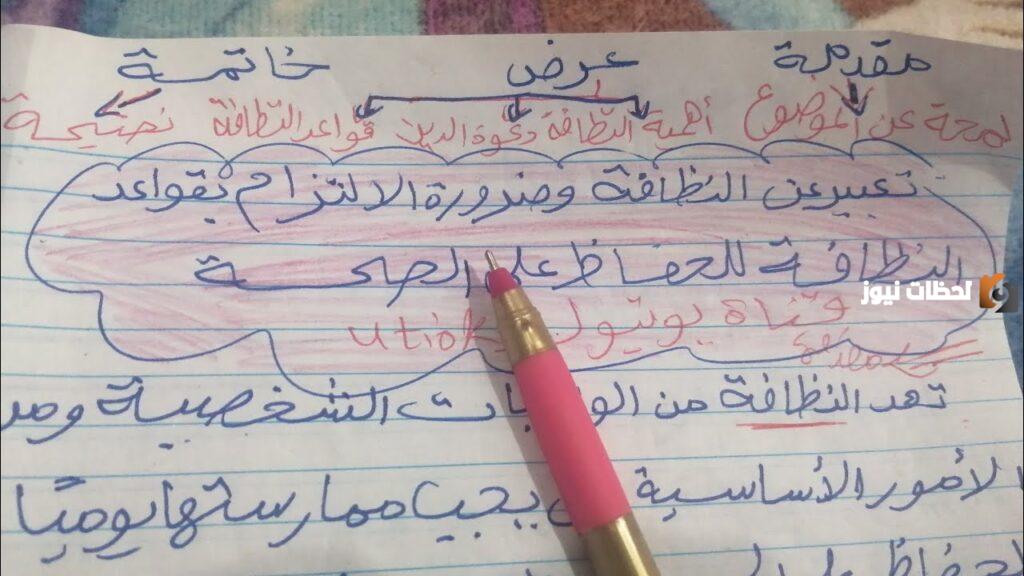 مقدمة عرض خاتمة
لمحة عن الموضوع أهمية النظافة دعوة الدين قواعد النظافة نصيحة
تعبير عن النظافة وضرورة الالتزام بقواعد
النظافة للحفاظ على الصحة
قناة يوتيوب
لحظات نيوز
تعد النظافة من الشخصية
الأمور الأساسية يجب ممارستها يوميًا